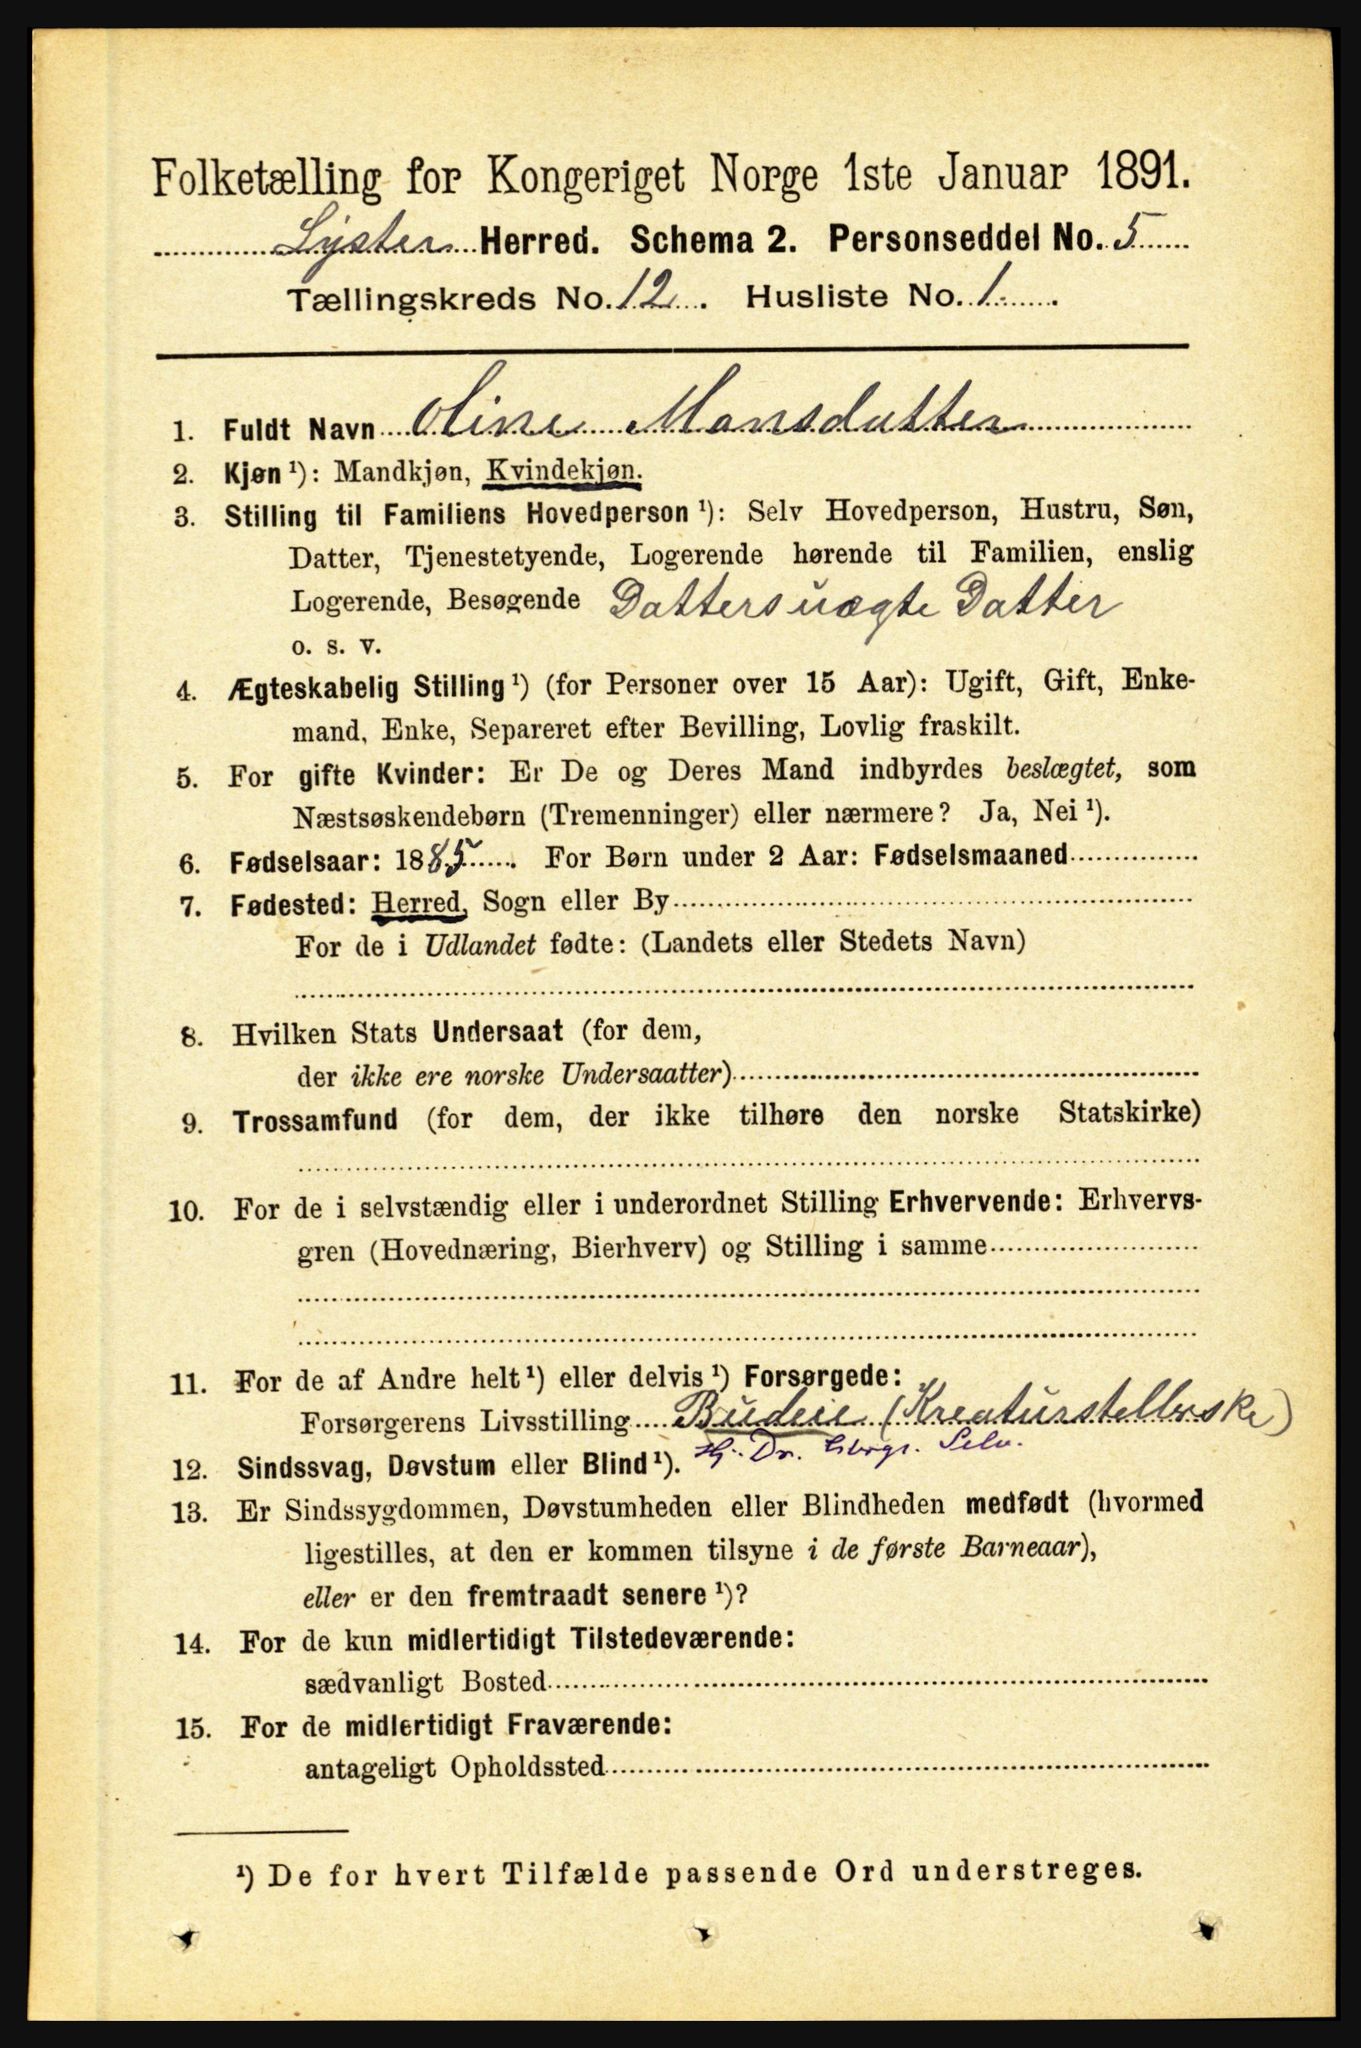 Folketælling for Kongeriget Norge 1ste Januar 1891.
Lyster Herred. Schema 2. Personseddel No. 5
Tællingskreds No. 12. Husliste No. 1
1. Fuldt Navn Oline Monsdatter
2. Kjøn ¹): Mandkjøn, Kvindekjøn.
3. Stilling til Familiens Hovedperson ¹): Selv Hovedperson, Hustru, Søn,
Datter, Tjenestetyende, Logerende hørende til Familien, enslig
Logerende, Besøgende Datters uægte Datter
o. s. v.
4. Ægteskabelig Stilling ¹) (for Personer over 15 Aar): Ugift, Gift, Enke-
mand, Enke, Separeret efter Bevilling, Lovlig fraskilt.
5. For gifte Kvinder: Er De og Deres Mand indbyrdes beslægtet, som
Næstsøskendebørn (Tremenninger) eller nærmere? Ja, Nei ¹).
6. Fødselsaar: 1885. For Børn under 2 Aar: Fødselsmaaned
7. Fødested: Herred, Sogn eller By
For de i Udlandet fødte: (Landets eller Stedets Navn)
8. Hvilken Stats Undersaat (for dem,
der ikke ere norske Undersaatter)
9. Trossamfund (for dem, der ikke tilhøre den norske Statskirke)
10. For de i selvstændig eller i underordnet Stilling Erhvervende: Erhvervs-
gren (Hovednæring, Bierhverv) og Stilling i samme
11. For de af Andre helt ¹) eller delvis ¹) Forsørgede:
Forsørgerens Livsstilling Budeie (Kreaturstellerske)
Hj. Dr. Selv.
12. Sindssvag, Døvstum eller Blind ¹).
13. Er Sindssygdommen, Døvstumheden eller Blindheden medfødt (hvormed
ligestilles, at den er kommen tilsyne i de første Barneaar),
eller er den fremtraadt senere ¹)?
14. For de kun midlertidigt Tilstedeværende:
sædvanligt Bosted
15. For de midlertidigt Fraværende:
antageligt Opholdssted
¹) De for hvert Tilfælde passende Ord understreges.